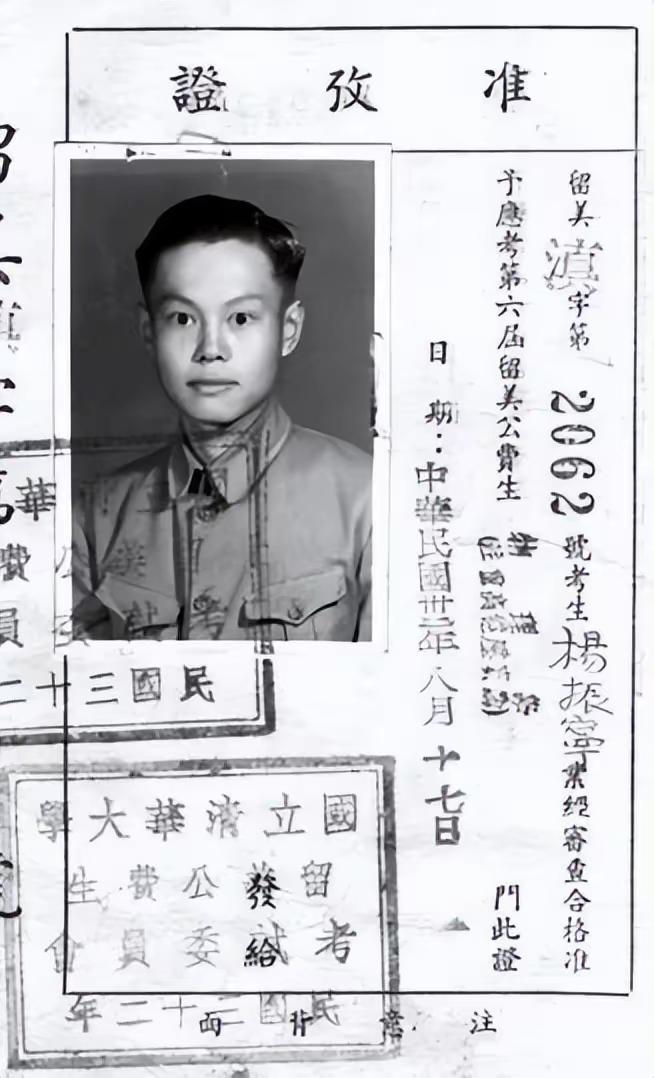 准考證
留美滇字第2062號考生楊振寧業經審查合格准
予應考第六屆留美公費生
門此證
日期：中華民國卅二年八月十七日
國立清華大學
留公費生
考試委員會
發給
民國三十二年
注意背面
華
費
員
民國三十二